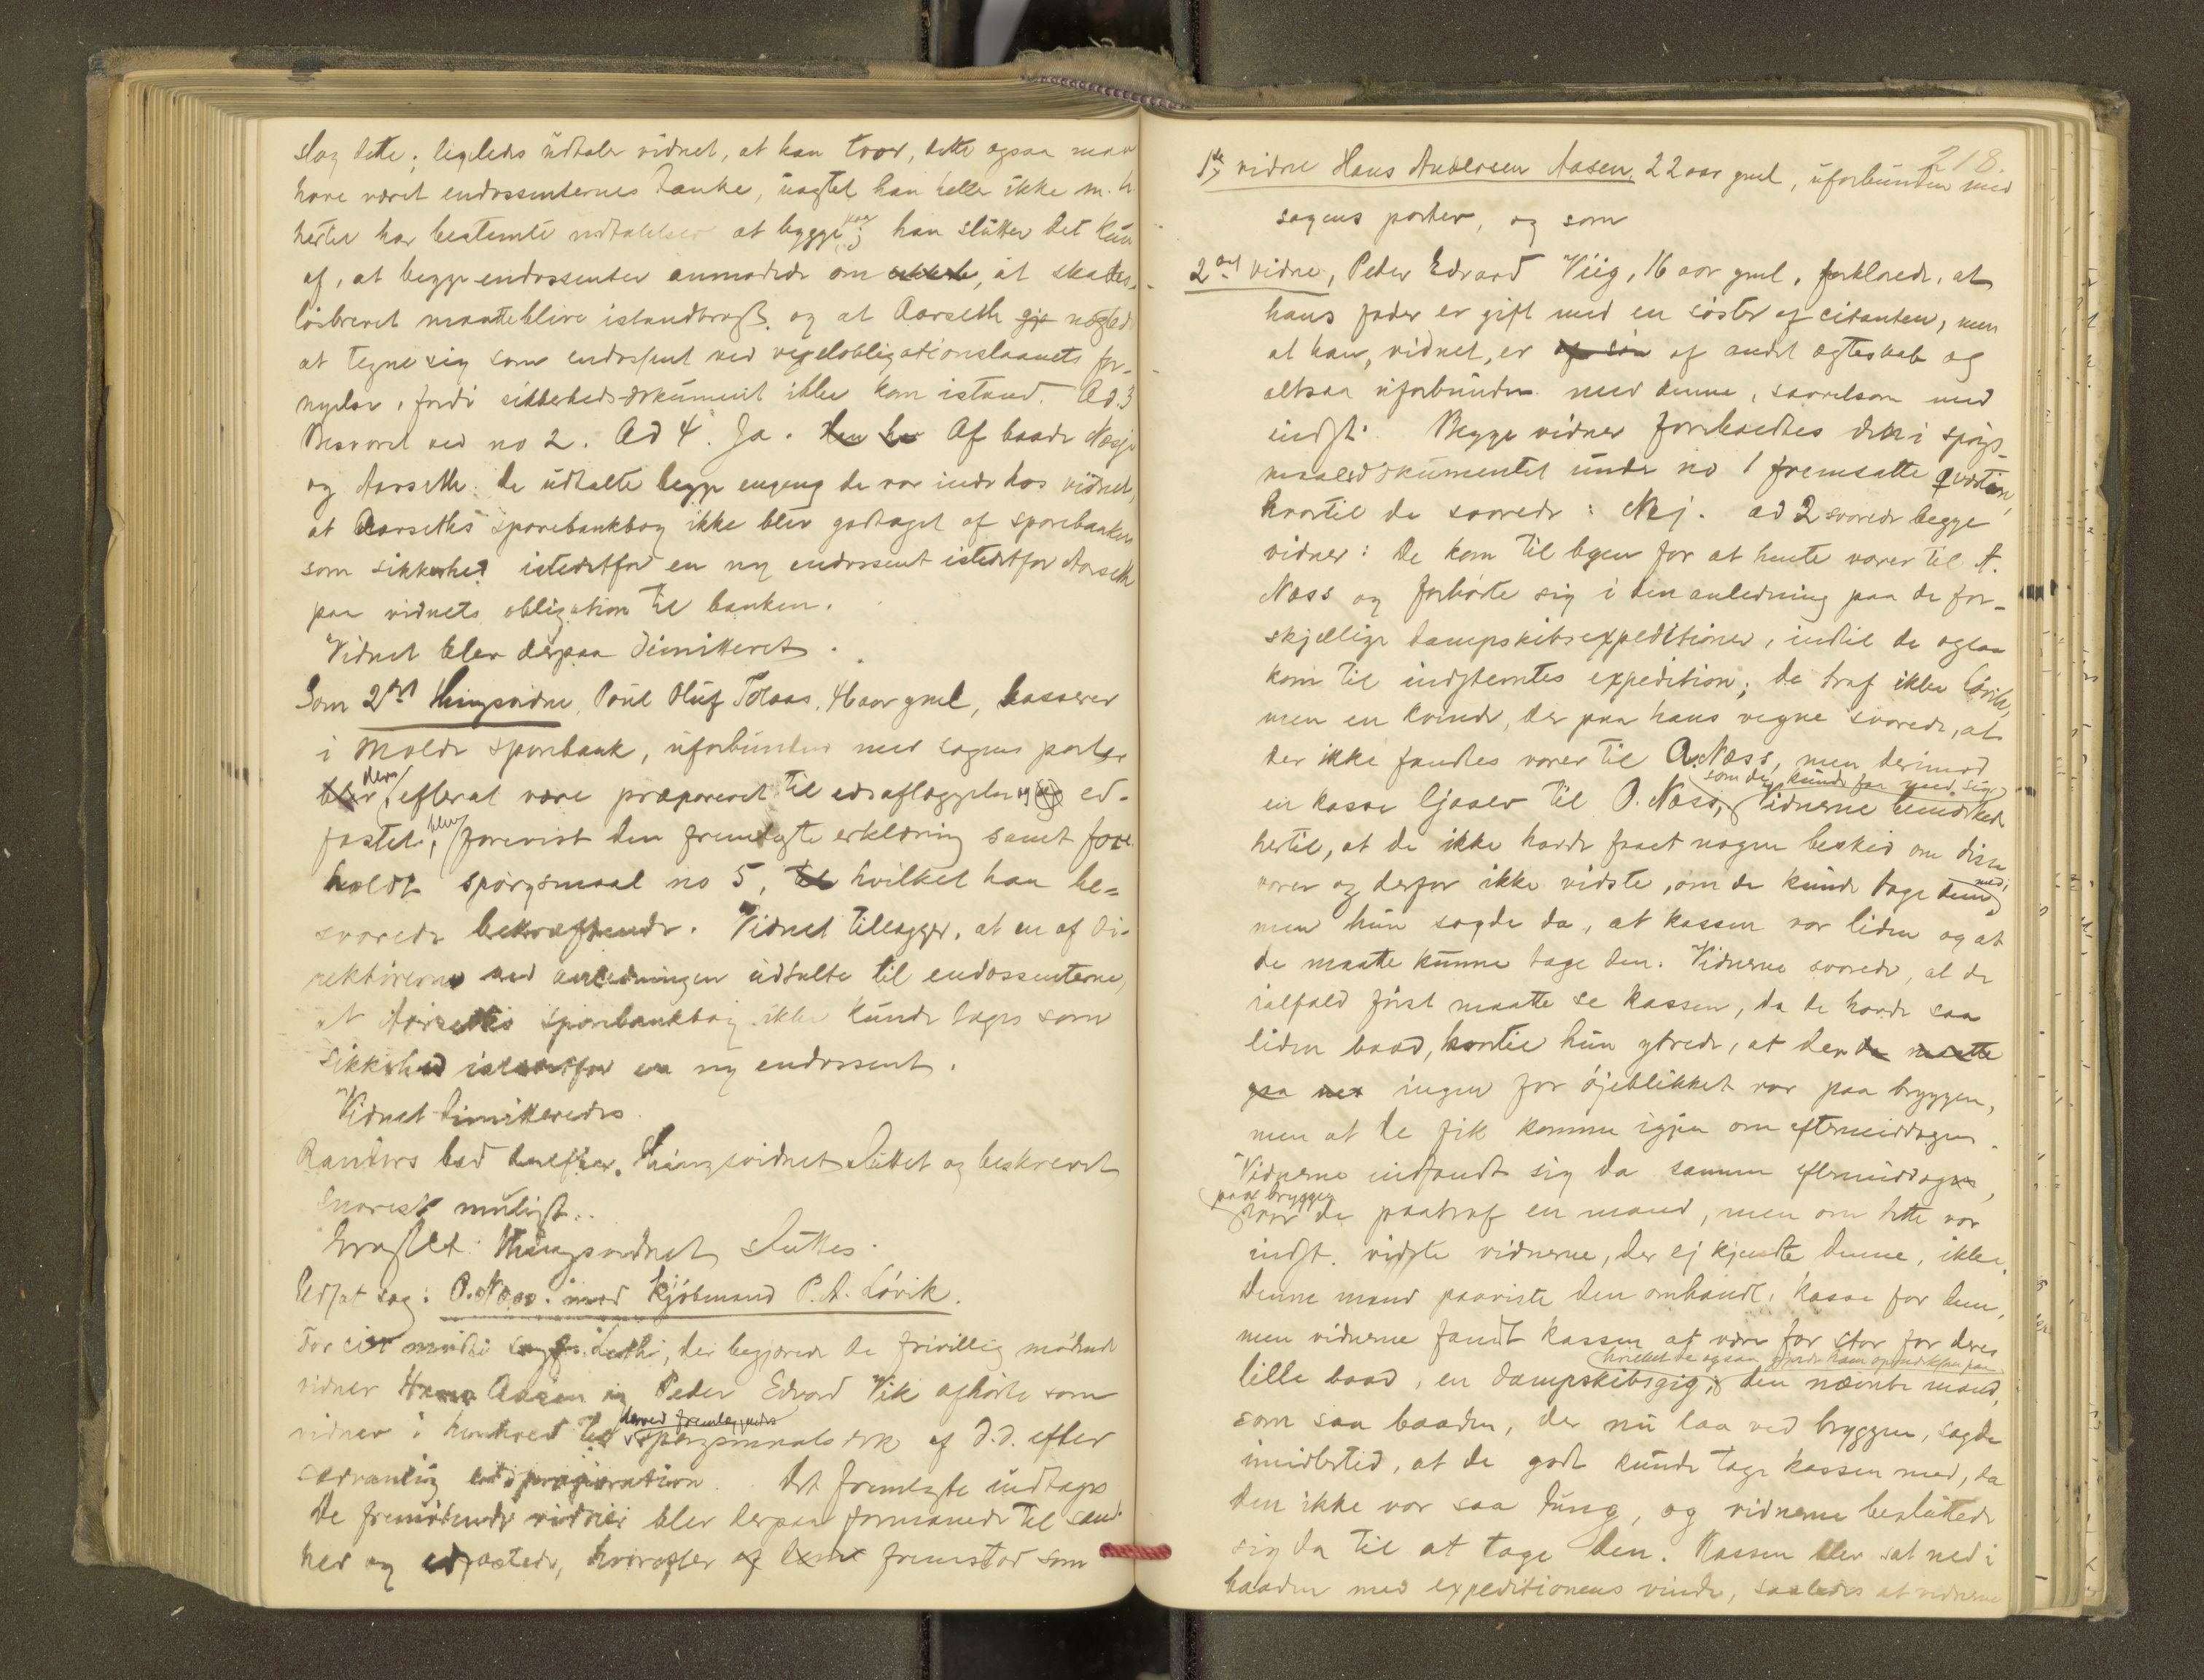 slog dette; ligeledes udtaler vidnet, at han tror, dette ogsaa maa
have været endossenternes tanke, uagtet han heller ikke m. h.
hertil har bestemte udtalelser at bygge paa; han slutter det kun
af, at begge endossenter anmodede om, at skades-
løsbrevet maatte blive istandbragt, og at Aarseth nægtede
at tegne sig som endossent ved vexelobligationslaanets for-
nyelse, fordi sikkerheds-dokument ikke kom istand. Ad 3
Besvaret ved no 2. Ad 4. Ja. Af baade Nesje
og Aarseth. De udtalte begge engang de var inde hos vidnet,
at Aarseths sparebankbog ikke blev godtaget af sparebanken
som sikkerhed istedetfor en ny endossent istedetfor Aarseth
paa vidnets obligation til banken.
Vidnet blev derpaa dimitteret.
Som 2det thingsvidne, Poul Oluf Tolaas, 46 aar gml, kasserer
i Molde sparebank, uforbunden med sagens parter
der, efterat være præpareret til edsaflæggelse og ed-
fæstet, blev forevist den fremlagte erklæring samt fore-
holdt spørgsmaal no 5, hvilket han be-
svarede bekræftende. Vidnet tillægger, at en af di-
rektørerne ved anledningen udtalte til endossenterne,
at Aarseths sparebankbog ikke kunde tages som
sikkerhed istedetfor en ny endossent.
Vidnet dimitteredes.
Randers bad derefter thingsvidnet sluttet og beskrevet
snarest muligt.
Eragtet: Thingsvidnet sluttes.
Udsat sag: O. Næss mod kjøbmand P. A. Løvik.
For cit mødte sagf. Leth, der begjærede de frivillig mødende
vidner Hans Aasen og Peder Edvard Vik afhørte som
vidner i henhold til derved fremlagt spørgsmaals dok af d.d. efter
sædvanlig edspræparation. Det fremlagte indtages
De fremmødende vidner blev derpaa formanede til sand-
hed og edfæstede, hvorefter fremstod som
218.
1ste vidne Hans Andersen Aasen, 22 aar gml, uforbunden med
sagens parter, og som
2det vidne, Peder Edvard Viig, 16 aar gml, forklarede, at
hans fader er gift med en søster af citanten, men
at han, vidnet, er af andet ægteskab og
altsaa uforbunden med denne, saavelsom med
indst. Begge vidner foreholdtes det i spørgs-
maalsdokumentet under no 1 fremsatte qvæstion,
hvortil de svarede: Nej. ad 2 svarede begge
vidner: De kom til byen for at hente varer til A.
Næss og forhørte sig i den anledning paa de for-
skjellige dampskibsexpeditioner, indtil de ogsaa
kom til indstevntes expedition; de traf ikke Løvik,
men en kvinde, der paa hans vegne svarede, at
der ikke fandtes varer til A. Næss, men derimod
en kasse til O. Næss, som de kunde faa med sig. Vidnerne bemærkede
hertil, at de ikke havde faaet nogen besked om disse
varer og derfor ikke vidste, om de kunde tage dem med;
men hun sagde da, at kassen var liden og at
de maatte kunne tage den. Vidnerne svarede, at de
ialfald først maatte se kassen, da de havde saa
liden baad, hvortil hun ytrede, at der
ingen for øjeblikket var paa bryggen,
men at de fik komme igjen om eftermiddagen.
Vidnerne indfandt sig da samme eftermiddag,
hvor de paa bryggen paatraf en mand, men om dette var
indst. vidste vidnerne, der ej kjendte denne, ikke.
Denne mand paaviste den omhandl. kasse for dem,
men vidnerne fandt kassen at være for stor for deres
lille baad, en dampskibsgig, hvilket de ogsaa gjorde ham opmerksom paa; den nævnte mand,
som saa baaden, der nu laa ved bryggen, sagde
imidlertid, at de godt kunde tage kassen med, da
den ikke var saa tung, og vidnerne besluttede
sig da til at tage den. Kassen blev sat ned i
baaden med expeditionens vinde, saaledes at vidnerne